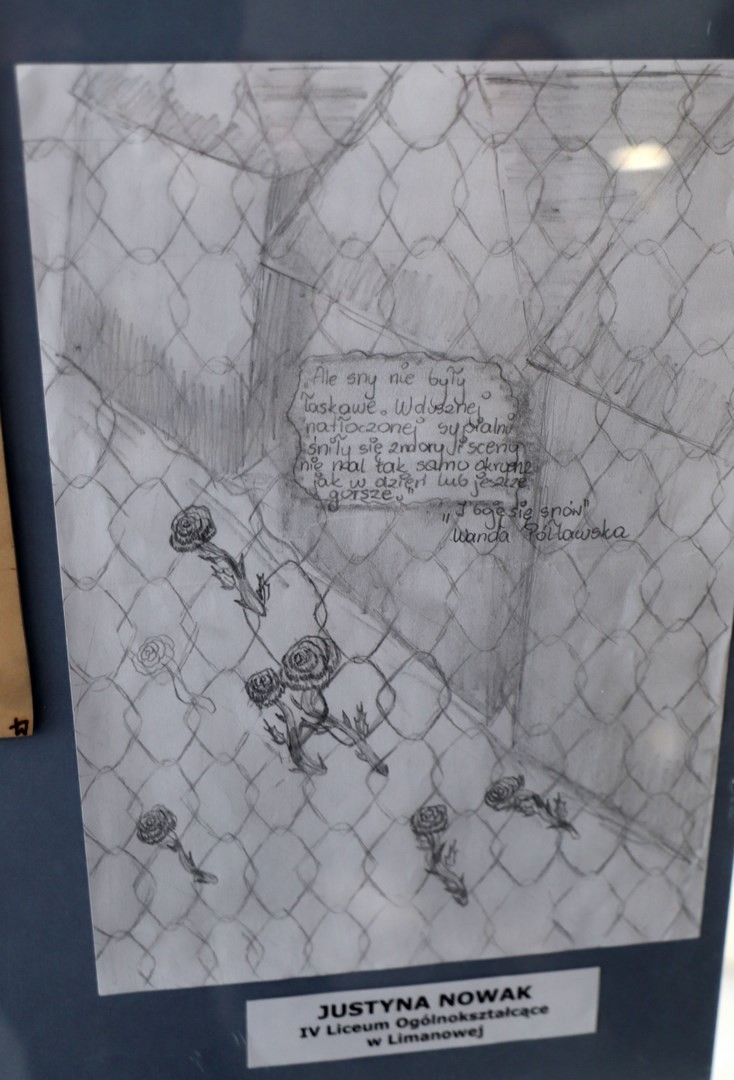 „Ale sny nie były
łaskawe. W dusznej
natłoczonej sypialni
śniły się zmory i sceny
nie mal tak samo okrutne
jak w dzień lub jeszcze
gorsze."
„I boję się snów"
Wanda Półtawska
JUSTYNA NOWAK
IV Liceum Ogólnokształcące
w Limanowej